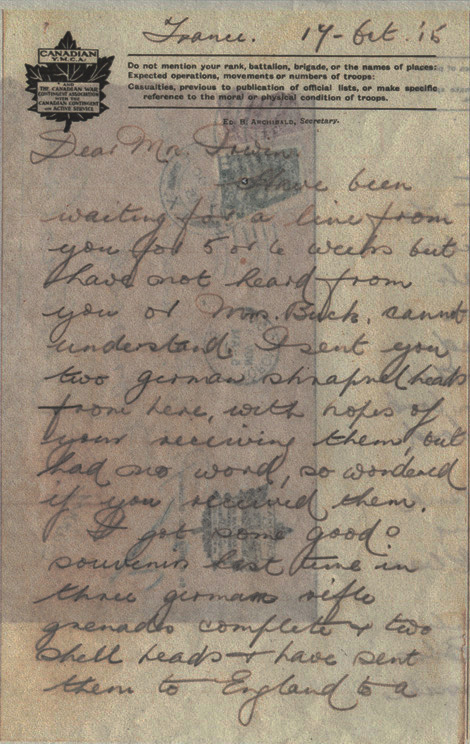 France. 17-Oct. '15
CANADIAN
Y.M.C.A.
AND
THE CANADIAN WAR
CONTINGENT ASSOCIATION
WITH THE
CANADIAN CONTINGENT
ON ACTIVE SERVICE
Do not mention your rank, battalion, brigade, or the names of places:
Expected operations, movements or numbers of troops:
Casualties, previous to publication of official lists, or make specific
reference to the moral or physical condition of troops.
ED. H. ARCHIBALD, Secretary.
Dear Mrs.
Have been
waiting for a line from
you for 5 or 6 weeks but
have not heard from
you or Mrs. Buck, cannot
understand. I sent you
two german shrapnel heads
from here, with hopes of
your receiving them, but
had no word, so wondered
if you received them.
I got some good
souvenirs last time in
three german rifle
grenades complete & two
shell heads & have sent
them to England to a